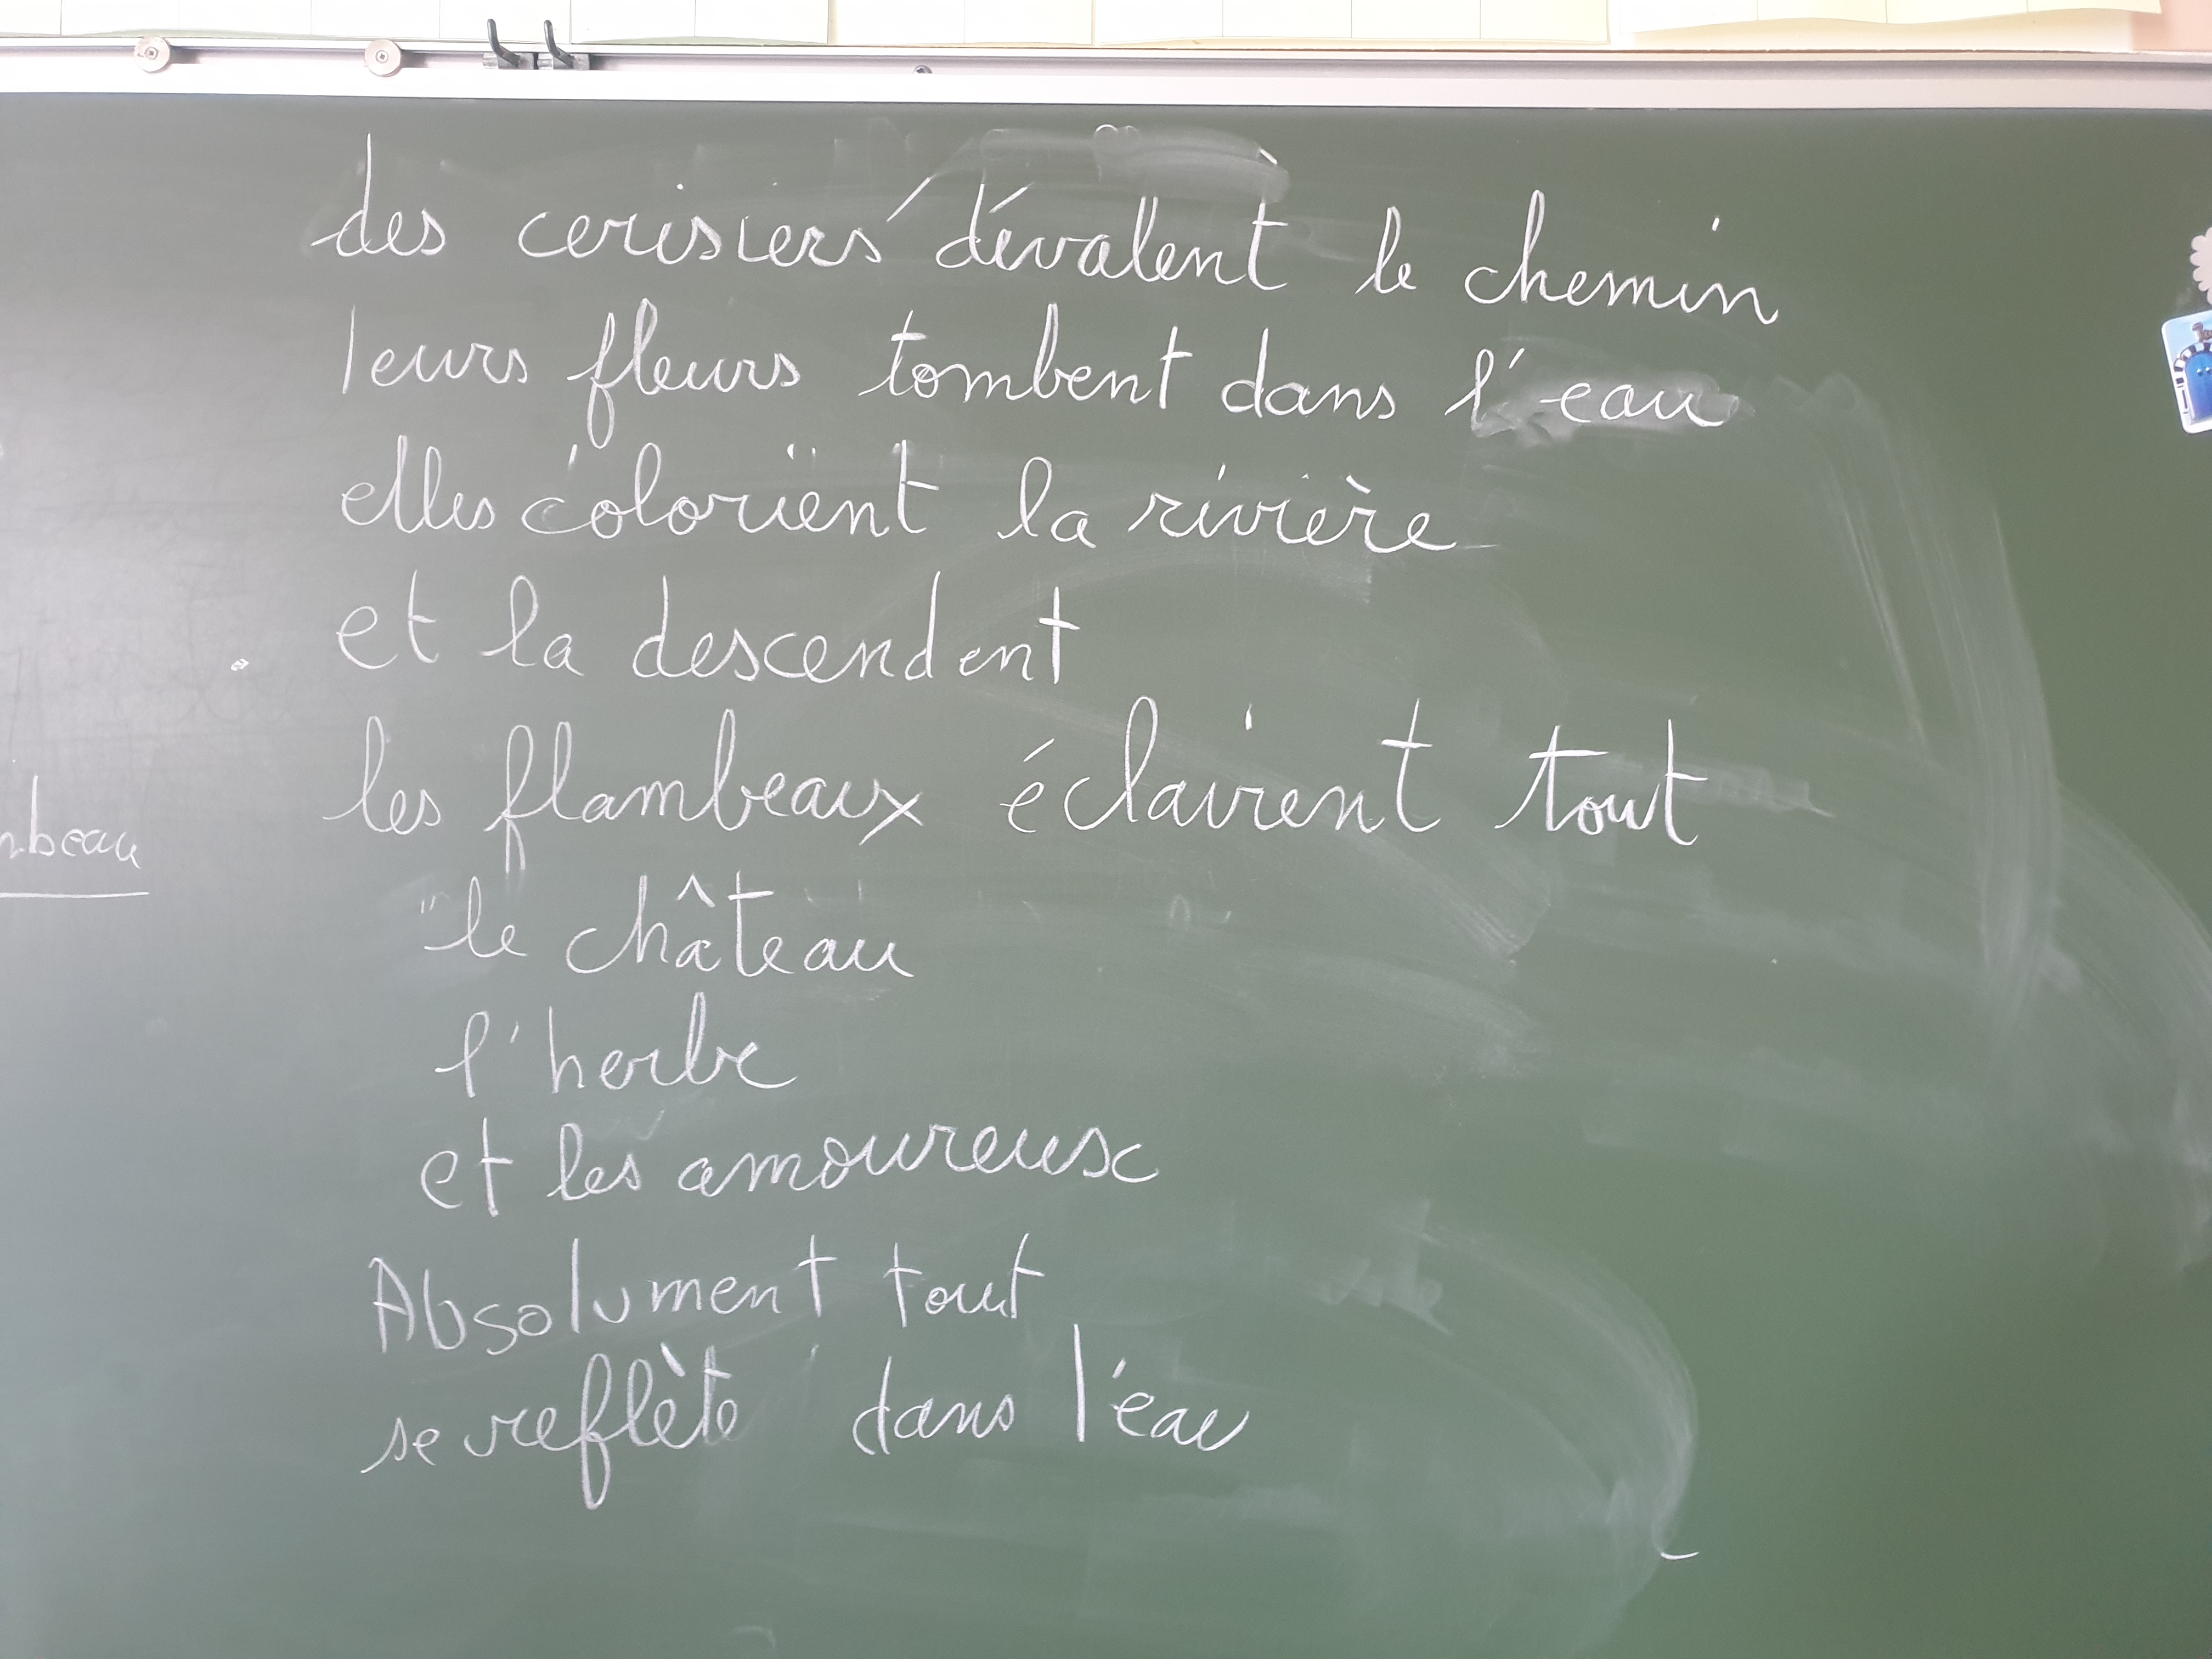 des cerisiers dévalent le chemin
leurs fleurs tombent dans l'eau
elles colorient la rivière
et la descendent
les flambeaux éclairent tout
nbeau
le château
l'herbe
et les amoureux
Absolument tout
se reflète dans l'eau